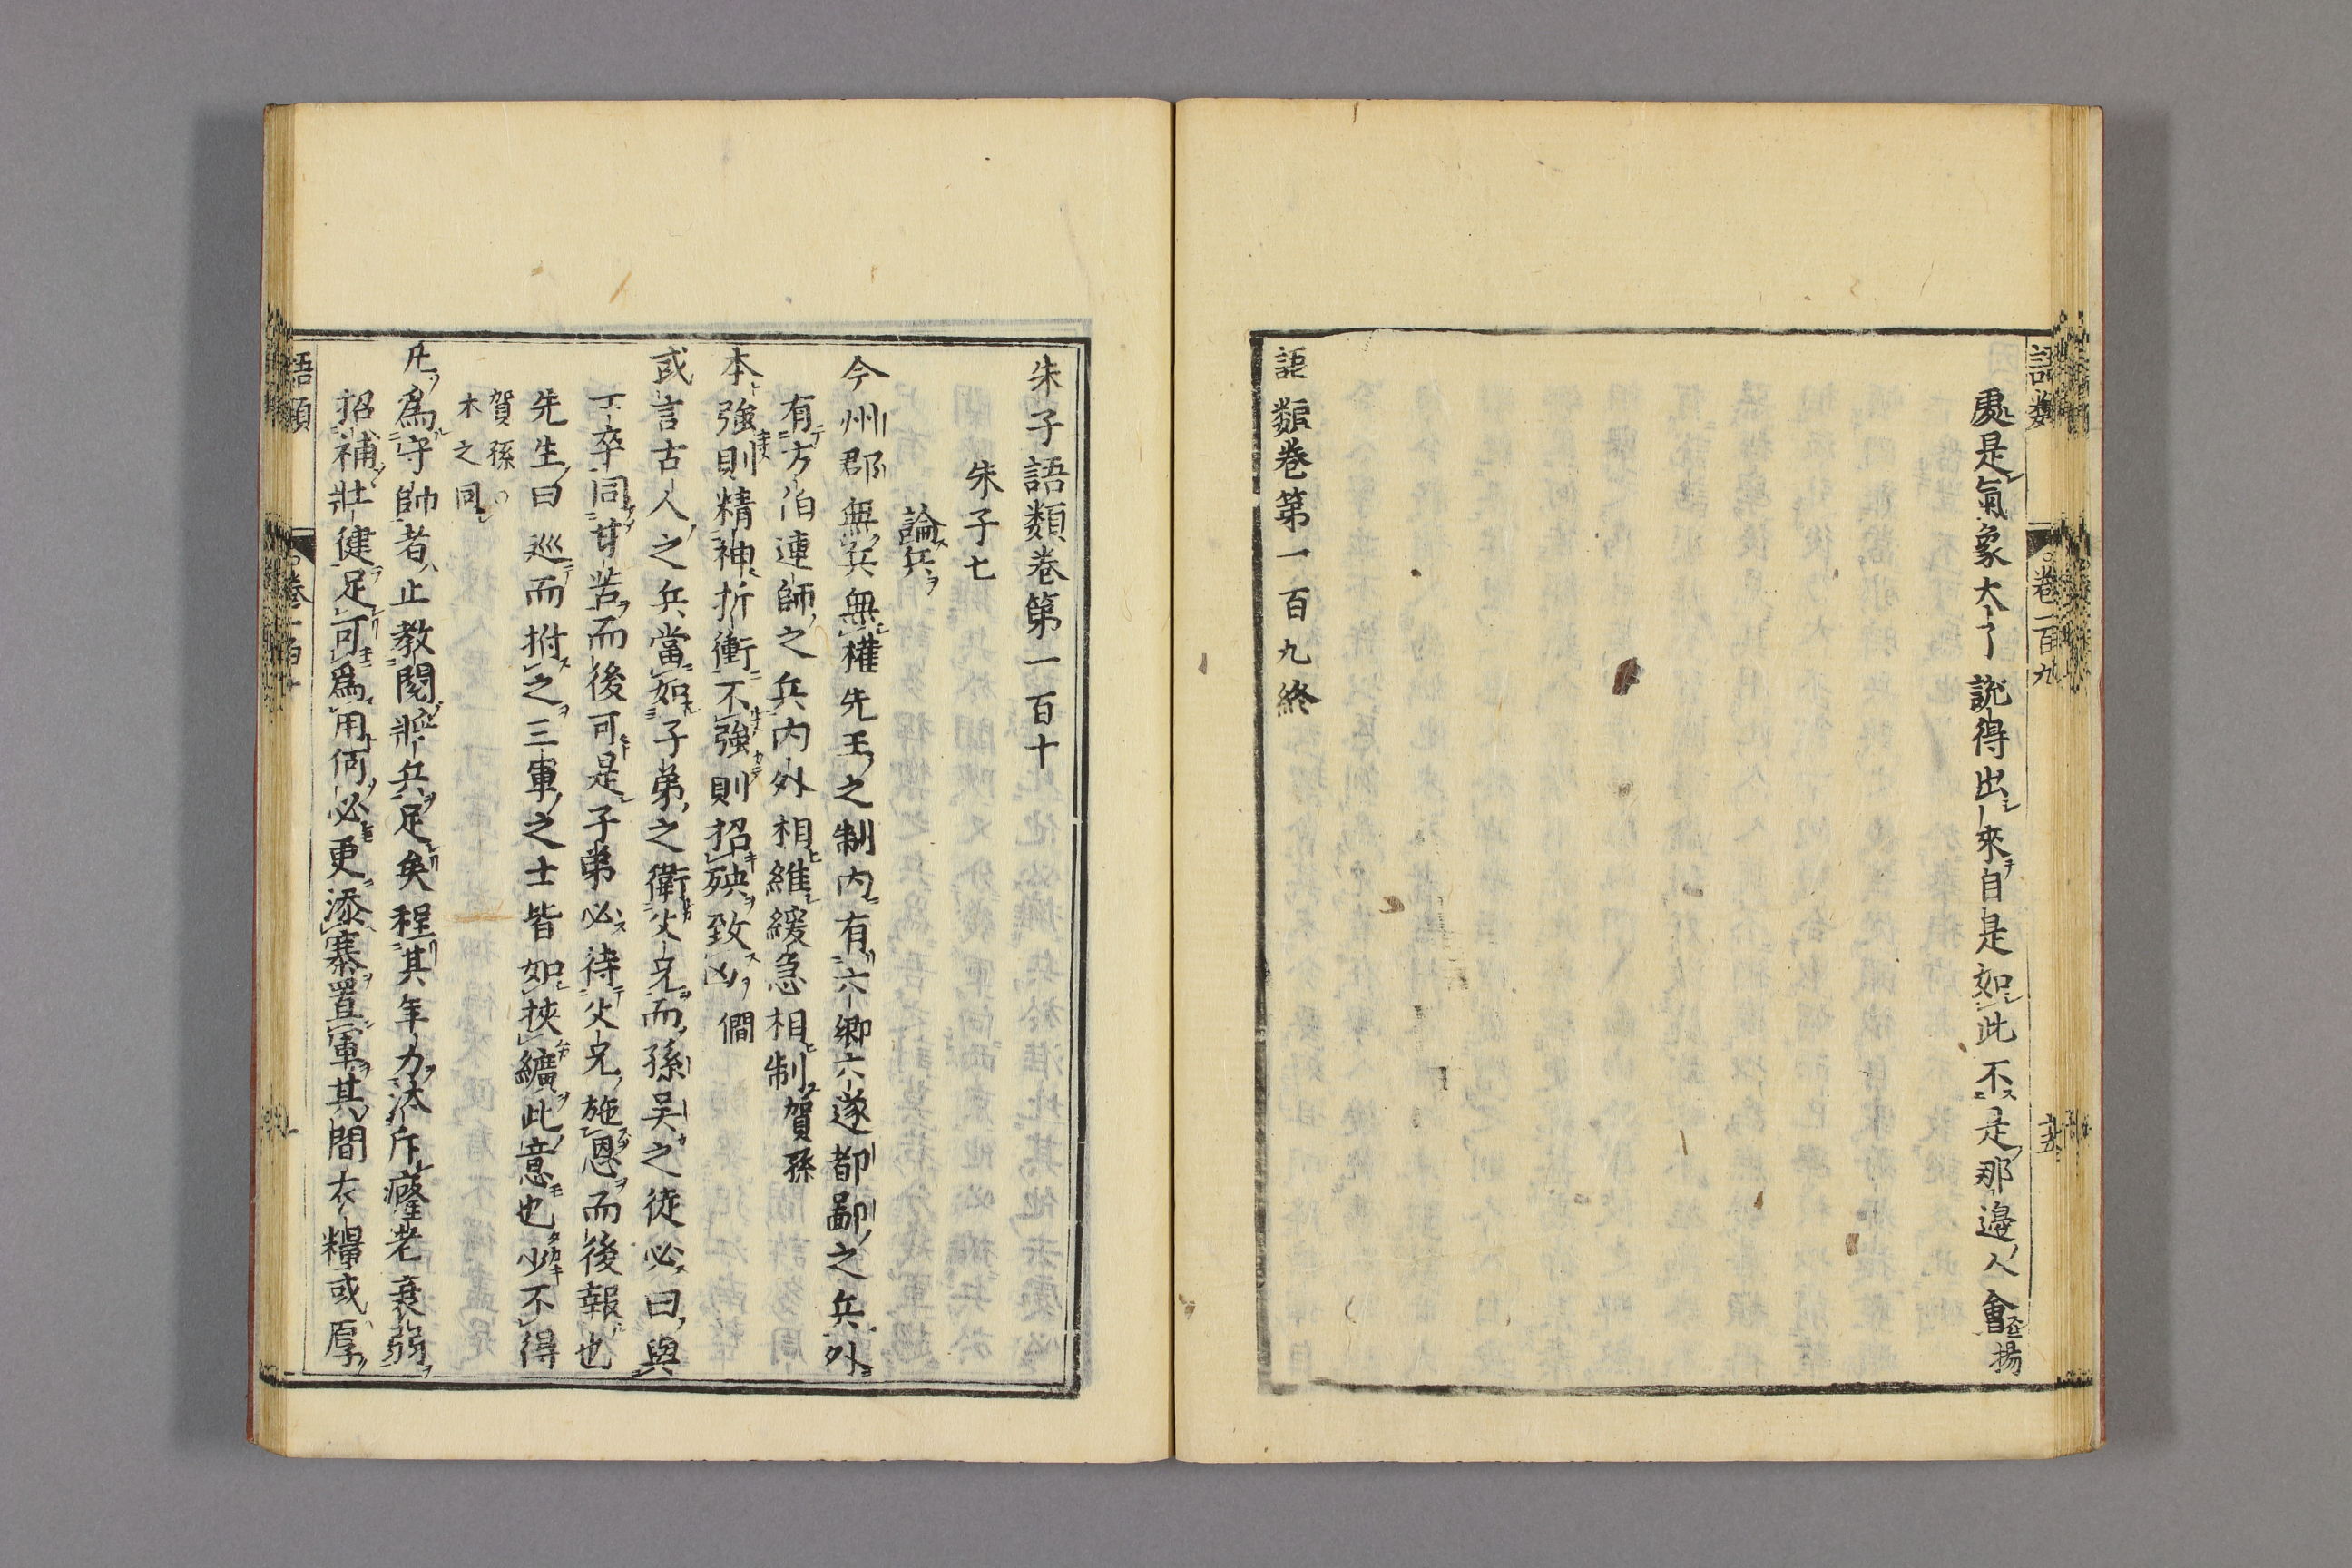 語類 卷一百九
處是氣象大了說得出來自是如此不是那邊人會 揚
語類卷第一百九終
朱子語類卷第一百十
朱子七
論兵
今州郡無兵無權先王之制內有六鄉六遂都鄙之兵外
有方伯連師之兵內外相維緩急相制賀孫
本強則精神折衝不強則招殃致凶僩
或言古人之兵當如子弟之衛父兄而孫吳之徒必曰與
士卒同甘苦而後可是子弟必待父兄施恩而後報也
先生曰巡而拊之三軍之士皆如挾纊此意也少不得
賀孫○
木之同
凡為守帥者止教閱將兵足矣程其年力汰斥癃老衰弱
招補壯健足可為用何必更添寨置軍其間衣糧或厚
語類 卷一百十